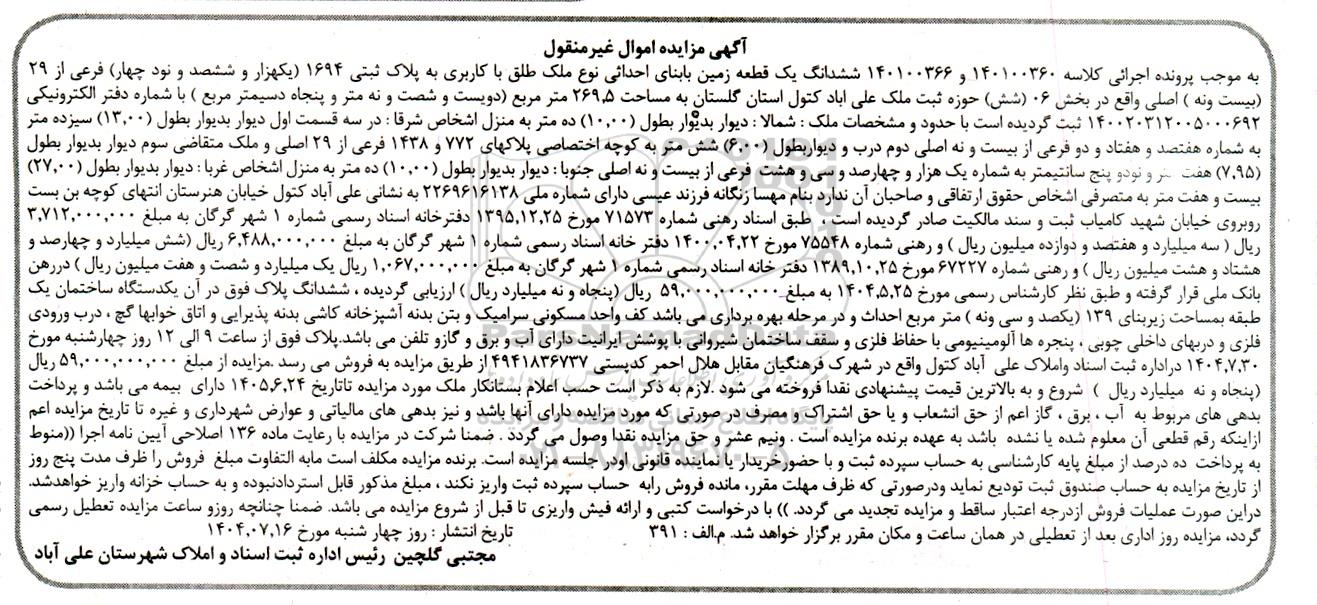 آگهی مزایده اموال غیرمنقول
به موجب پرونده اجرائی کلاسه ۱۴۰۱۰۰۳۶۰ و ۱۴۰۱۰۰۳۶۶ ششدانگ یک قطعه زمین بابنای احداثی نوع ملک طلق با کاربری به پلاک ثبتی ۱۶۹۴ (یکهزار و ششصد و نود چهار) فرعی از ۲۹
(بیست ونه ) اصلی واقع در بخش ۰۶ (شش) حوزه ثبت ملک علی اباد کتول استان گلستان به مساحت ۲۶۹,۵ متر مربع (دویست و شصت و نه متر و پنجاه دسیمتر مربع ) با شماره دفتر الکترونیکی
۱۴۰۰۲۰۳۱۲۰۰۵۰۰۰۶۹۲ ثبت گردیده است با حدود و مشخصات ملک : شمالا : دیوار بدیوار بطول (۱۰,۰۰) ده متر به منزل اشخاص شرقا : در سه قسمت اول دیوار بدیوار بطول (۱۳,۰۰) سیزده متر
به شماره هفتصد و هفتاد و دو فرعی از بیست و نه اصلی دوم درب و دیواربطول (۶,۰۰) شش متر به کوچه اختصاصی پلاکهای ۷۷۲ و ۱۴۳۸ فرعی از ۲۹ اصلی و ملک متقاضی سوم دیوار بدیوار بطول
(۷,۹۵) هفت متر و نودو پنج سانتیمتر به شماره یک هزار و چهارصد و سی و هشت فرعی از بیست و نه اصلی جنوبا : دیوار بدیوار بطول (۱۰,۰۰) ده متر به منزل اشخاص غربا : دیوار بدیوار بطول (۲۷,۰۰)
بیست و هفت متر به متصرفی اشخاص حقوق ارتفاقی و صاحبان آن ندارد بنام مهسا زنگانه فرزند عیسی دارای شماره ملی ۲۲۶۹۶۱۶۱۳۸ به نشانی علی آباد کتول خیابان هنرستان انتهای کوچه بن بست
روبروی خیابان شهید کامیاب ثبت و سند مالکیت صادر گردیده است . طبق اسناد رهنی شماره ۷۱۵۷۳ مورخ ۱۳۹۵,۱۲,۲۵ دفترخانه اسناد رسمی شماره ۱ شهر گرگان به مبلغ ۳,۷۱۲,۰۰۰,۰۰۰
ریال ( سه میلیارد و هفتصد و دوازده میلیون ریال ) و رهنی شماره ۷۵۵۴۸ مورخ ۱۴۰۰,۰۴,۲۲ دفتر خانه اسناد رسمی شماره ۱ شهر گرگان به مبلغ ۶,۴۸۸,۰۰۰,۰۰۰ ریال (شش میلیارد و چهارصد و
هشتاد و هشت میلیون ریال ) و رهنی شماره ۶۷۲۲۷ مورخ ۱۳۸۹,۱۰,۲۵ دفتر خانه اسناد رسمی شماره ۱ شهر گرگان به مبلغ ۱,۰۶۷,۰۰۰,۰۰۰ ریال یک میلیارد و شصت و هفت میلیون ریال ) دررهن
بانک ملی قرار گرفته و طبق نظر کارشناس رسمی مورخ ۱۴۰۴,۵,۲۵ به مبلغ ۵۹,۰۰۰,۰۰۰,۰۰۰ ریال (پنجاه و نه میلیارد ریال ) ارزیابی گردیده ، ششدانگ پلاک فوق در آن یکدستگاه ساختمان یک
طبقه بمساحت زیربنای ۱۳۹ (یکصد و سی ونه ) متر مربع احداث و در مرحله بهره برداری می باشد کف واحد مسکونی سرامیک و بتن بدنه آشپزخانه کاشی بدنه پذیرایی و اتاق خوابها گچ ، درب ورودی
فلزی و دربهای داخلی چوبی ، پنجره ها آلومینیومی با حفاظ فلزی و سقف ساختمان شیروانی با پوشش ایرانیت دارای آب و برق و گازو تلفن می باشد.پلاک فوق از ساعت ۹ الی ۱۲ روز چهارشنبه مورخ
۱۴۰۴,۷,۳۰ دراداره ثبت اسناد واملاک علی آباد کتول واقع در شهرک فرهنگیان مقابل هلال احمر کدپستی ۴۹۴۱۸۳۶۷۳۷ از طریق مزایده به فروش می رسد .مزایده از مبلغ ۵۹,۰۰۰,۰۰۰,۰۰۰ ریال
(پنجاه و نه میلیارد ریال ) شروع و به بالاترین قیمت پیشنهادی نقدا فروخته می شود .لازم به ذکر است حسب اعلام بستانکار ملک مورد مزایده تاتاریخ ۱۴۰۵,۶,۲۴ دارای بیمه می باشد و پرداخت
بدهی های مربوط به آب ، برق ، گاز اعم از حق انشعاب و یا حق اشتراک و مصرف در صورتی که مورد مزایده دارای آنها باشد و نیز بدهی های مالیاتی و عوارض شهرداری و غیره تا تاریخ مزایده اعم
ازاینکه رقم قطعی آن معلوم شده یا نشده باشد به عهده برنده مزایده است . ونیم عشر و حق مزایده نقدا وصول می گردد . ضمنا شرکت در مزایده با رعایت ماده ۱۳۶ اصلاحی آیین نامه اجرا ((منوط
به پرداخت ده درصد از مبلغ پایه کارشناسی به حساب سپرده ثبت و با حضورخریدار یا نماینده قانونی اودر جلسه مزایده است. برنده مزایده مکلف است مابه التفاوت مبلغ فروش را ظرف مدت پنج روز
از تاریخ مزایده به حساب صندوق ثبت تودیع نماید ودرصورتی که ظرف مهلت مقرر، مانده فروش رابه حساب سپرده ثبت واریز نکند ، مبلغ مذکور قابل استردادنبوده و به حساب خزانه واریز خواهدشد.
دراین صورت عملیات فروش ازدرجه اعتبار ساقط و مزایده تجدید می گردد. )) با درخواست کتبی و ارائه فیش واریزی تا قبل از شروع مزایده می باشد. ضمنا چنانچه روزو ساعت مزایده تعطیل رسمی
گردد، مزایده روز اداری بعد از تعطیلی در همان ساعت و مکان مقرر برگزار خواهد شد. م.الف : ۳۹۱
تاریخ انتشار : روز چهار شنبه مورخ ۱۴۰۴,۰۷,۱۶
مجتبی گلچین رئیس اداره ثبت اسناد و املاک شهرستان علی آباد